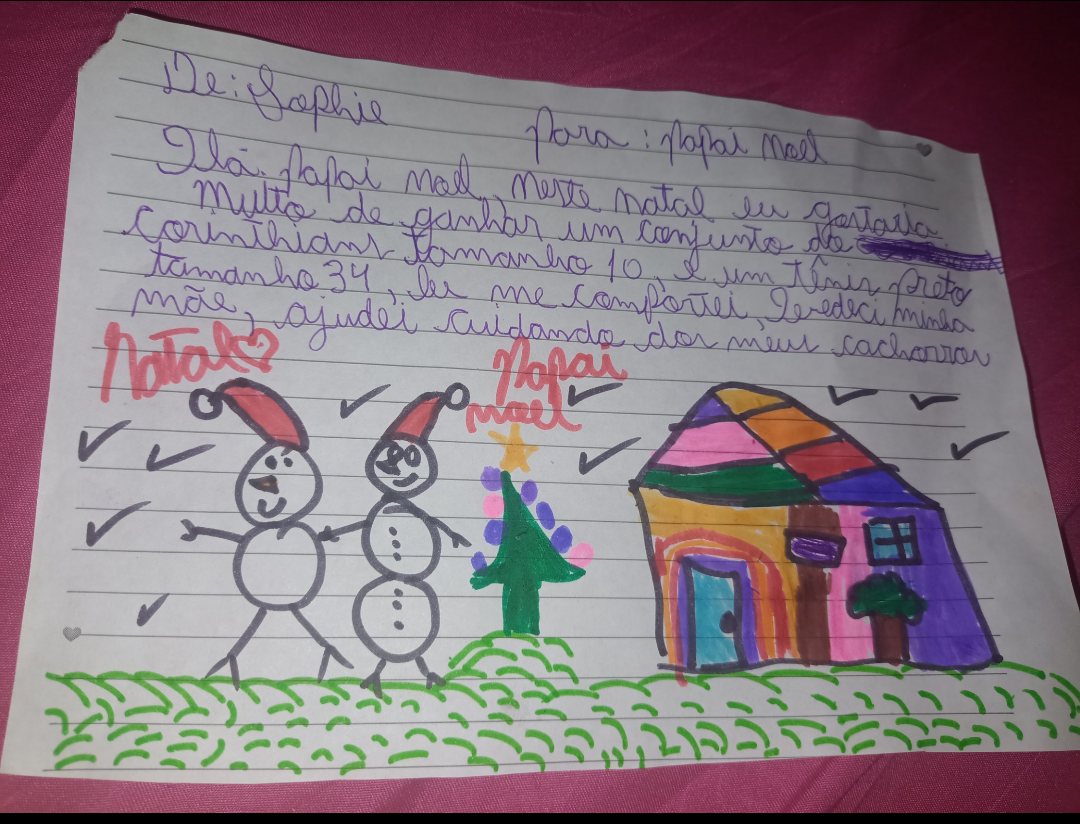 De: Sophie
Para: Papai Noel
Olá Papai Noel, neste natal eu gostaria
Muito de ganhar um conjunto do
corinthians tamanho 10, e um tênis preto
tamanho 34, eu me comportei, Ɔbedeci minha
mãe, ajudei cuidando dos meus cachorros
Natal♡
Papai
noel